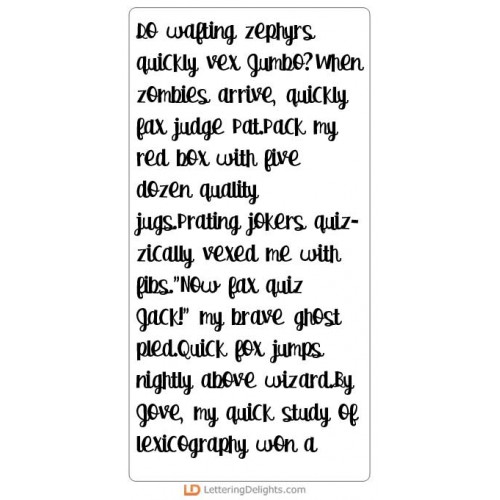 Do wafting zephyrs
quickly vex Jumbo?When
zombies arrive, quickly
fax judge Pat.Pack my
red box with five
dozen quality
jugs.Prating jokers quiz-
zically vexed me with
fibs."Now fax quiz
Jack!" my brave ghost
pled.Quick fox jumps
nightly above wizard.By
Jove, my quick study of
lexicography won a
LD LetteringDelights.com